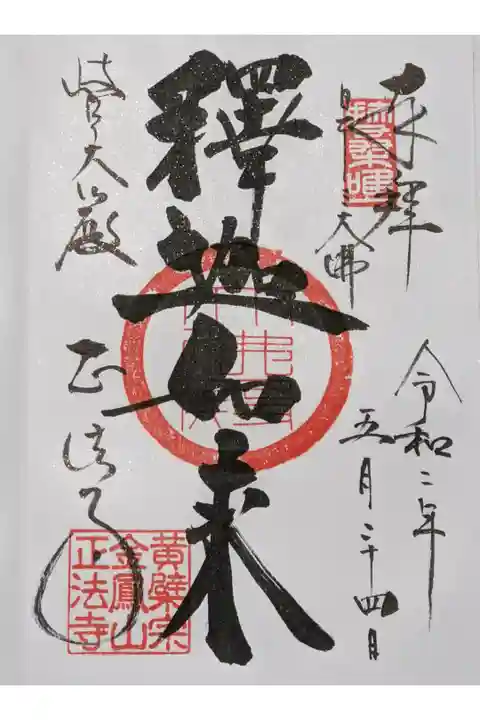 奉拝
大佛
令和二年
五月二十四日
釋迦如来
岐阜大仏殿
正法寺
黄檗宗
金鳳山
正法寺